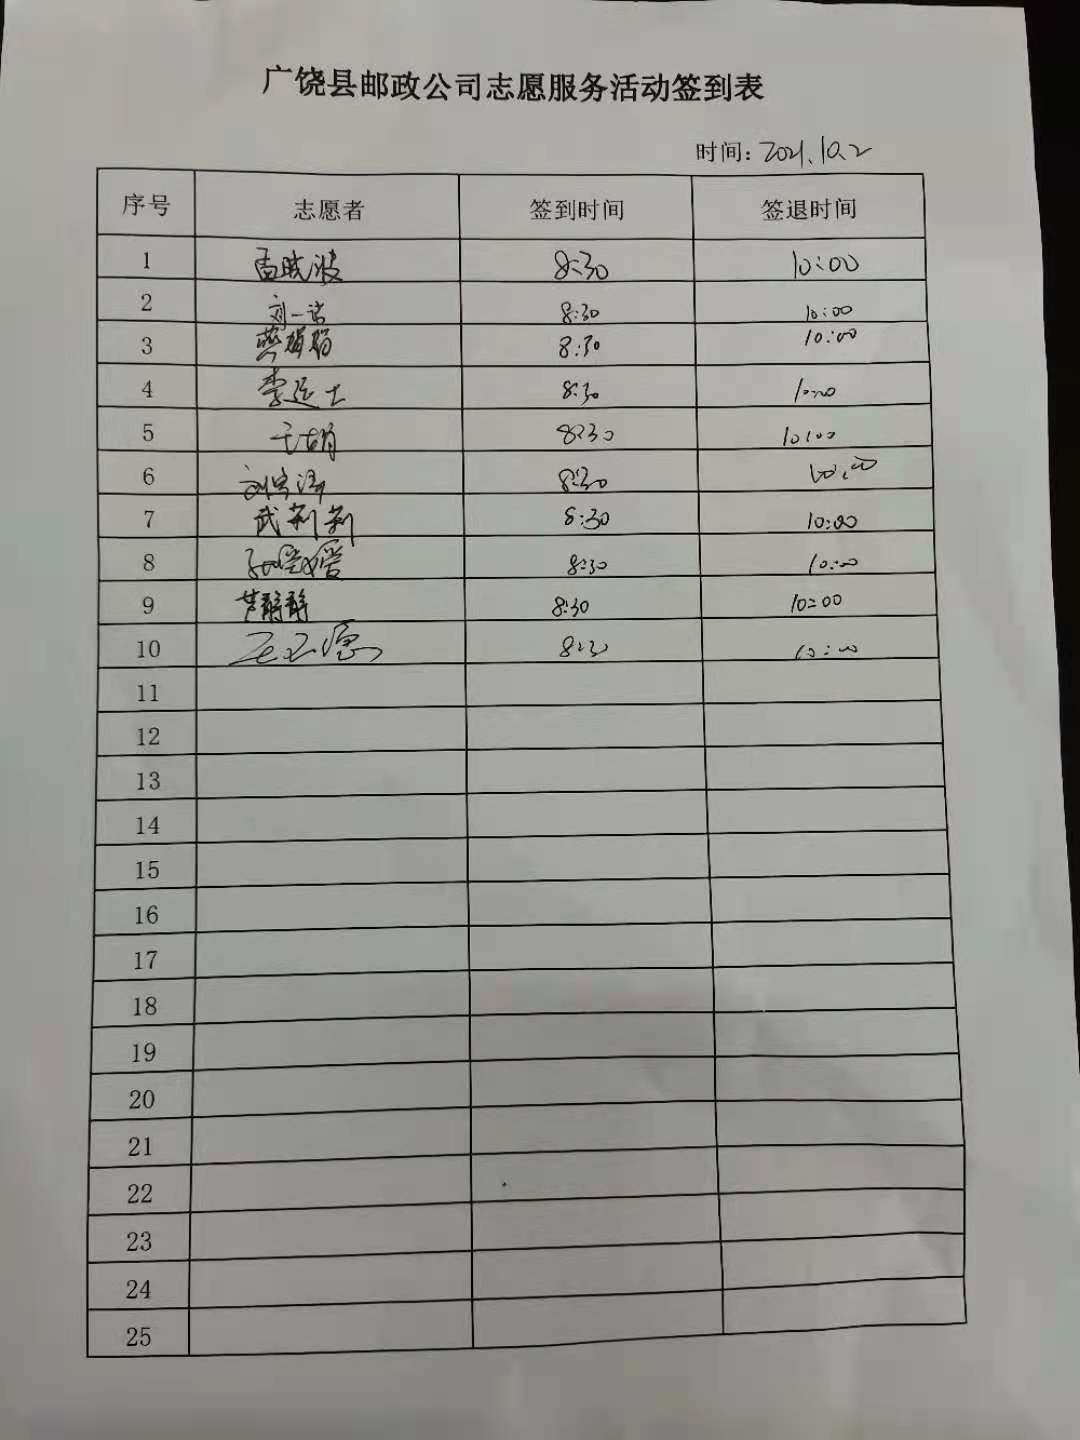 广饶县邮政公司志愿服务活动签到表
时间：2021.10.2
序号 志愿者 签到时间 签退时间
1 孟晓波 8:30 10:00
2 刘一诺 8:30 10:00
3 8:30 10:00
4 李延士 8:30 10:00
5 于娟 8:30 10:00
6 刘 8:30 10:00
7 武荆荆 8:30 10:00
8 8:30 10:00
9 芦静静 8:30 10:00
10 8:30 10:00
11
12
13
14
15
16
17
18
19
20
21
22
23
24
25